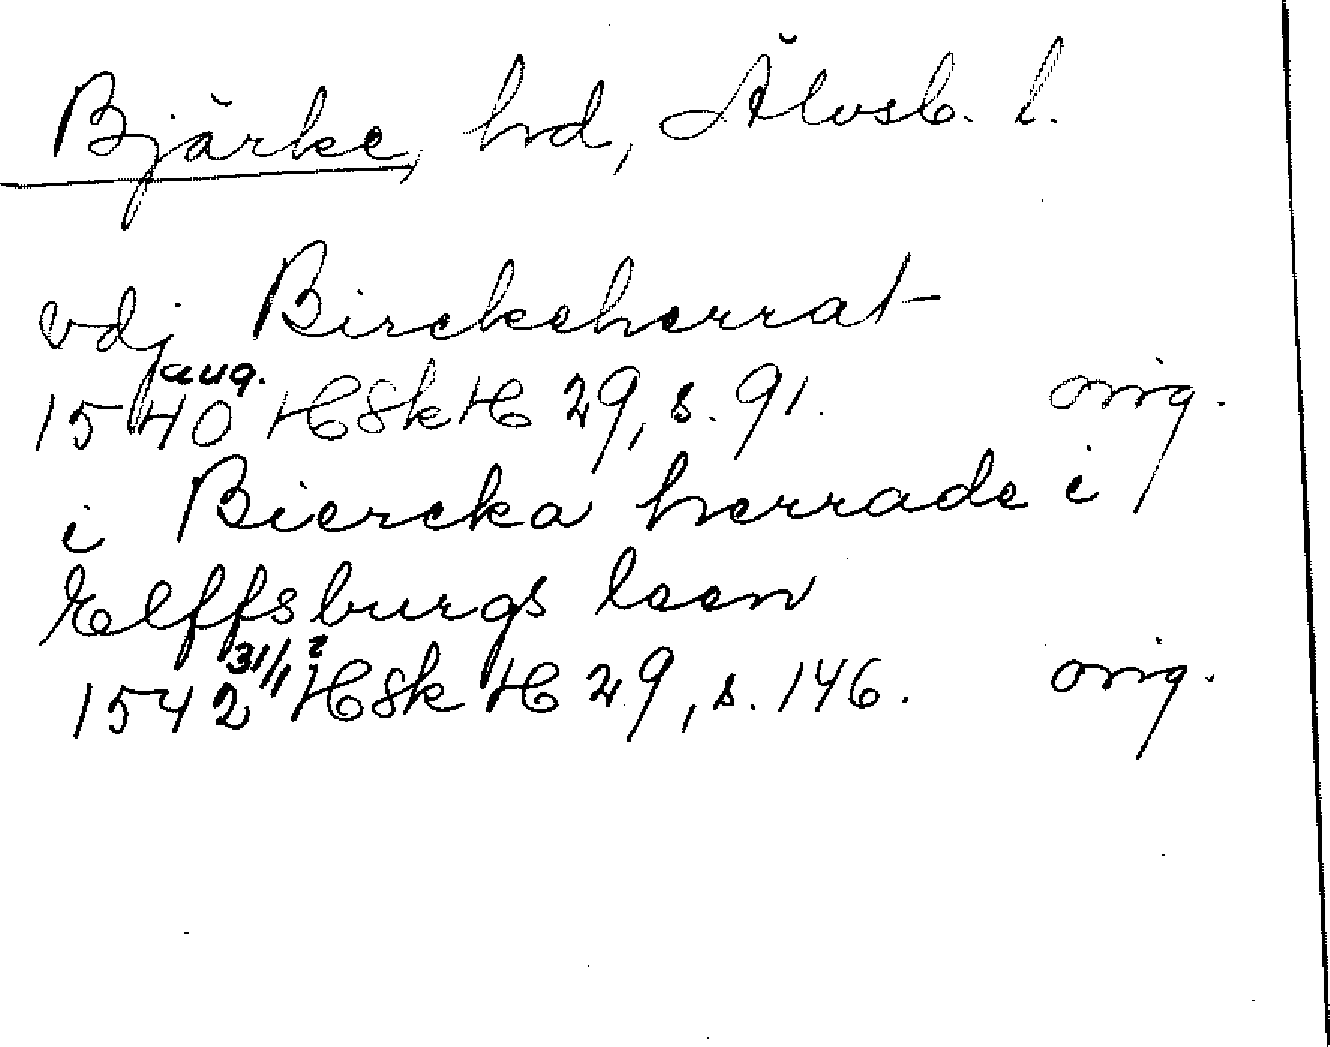 Bjärke, hd, Älvsb. l.
vdj Birckeherrat
aug.
1540 HSkH 29, s. 91. orig.
i Biercka herrade i
Elffsburgs leen
31/1 ?
1542 HSkH 29, s. 146. orig.